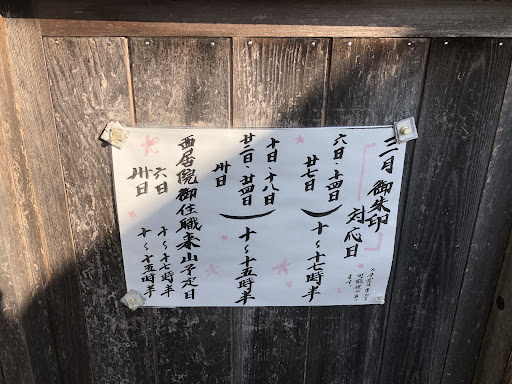 三月 御朱印
対応日
六日、十四日
廿七日
十〜十七時半
十日、十八日
廿二日、廿四日
卅日
十〜十五時半
西居院御住職来山予定日
六日 十〜十七時半
卅日 十〜十五時半